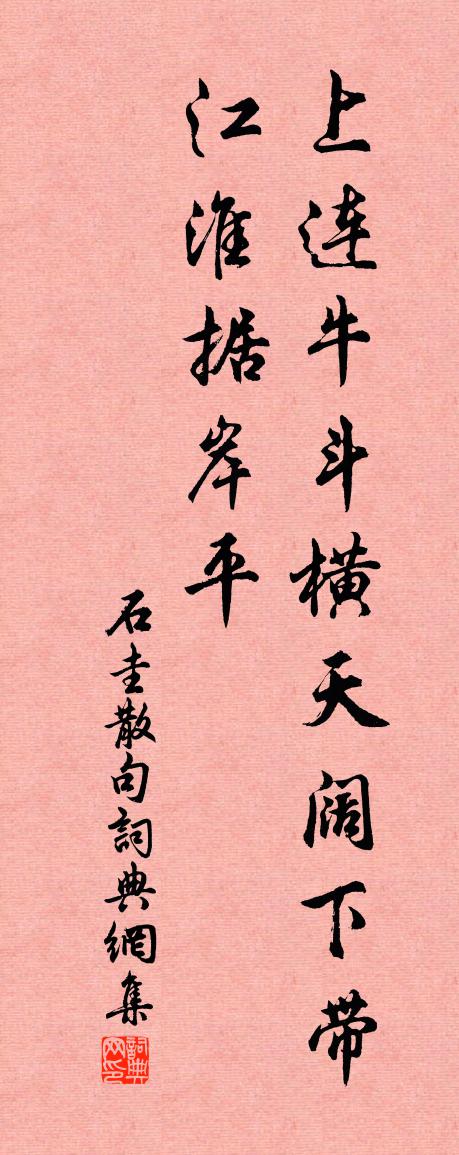 上连牛斗横天阔下带
江淮据岸平
石圭散句詞典網集
詞典
网印